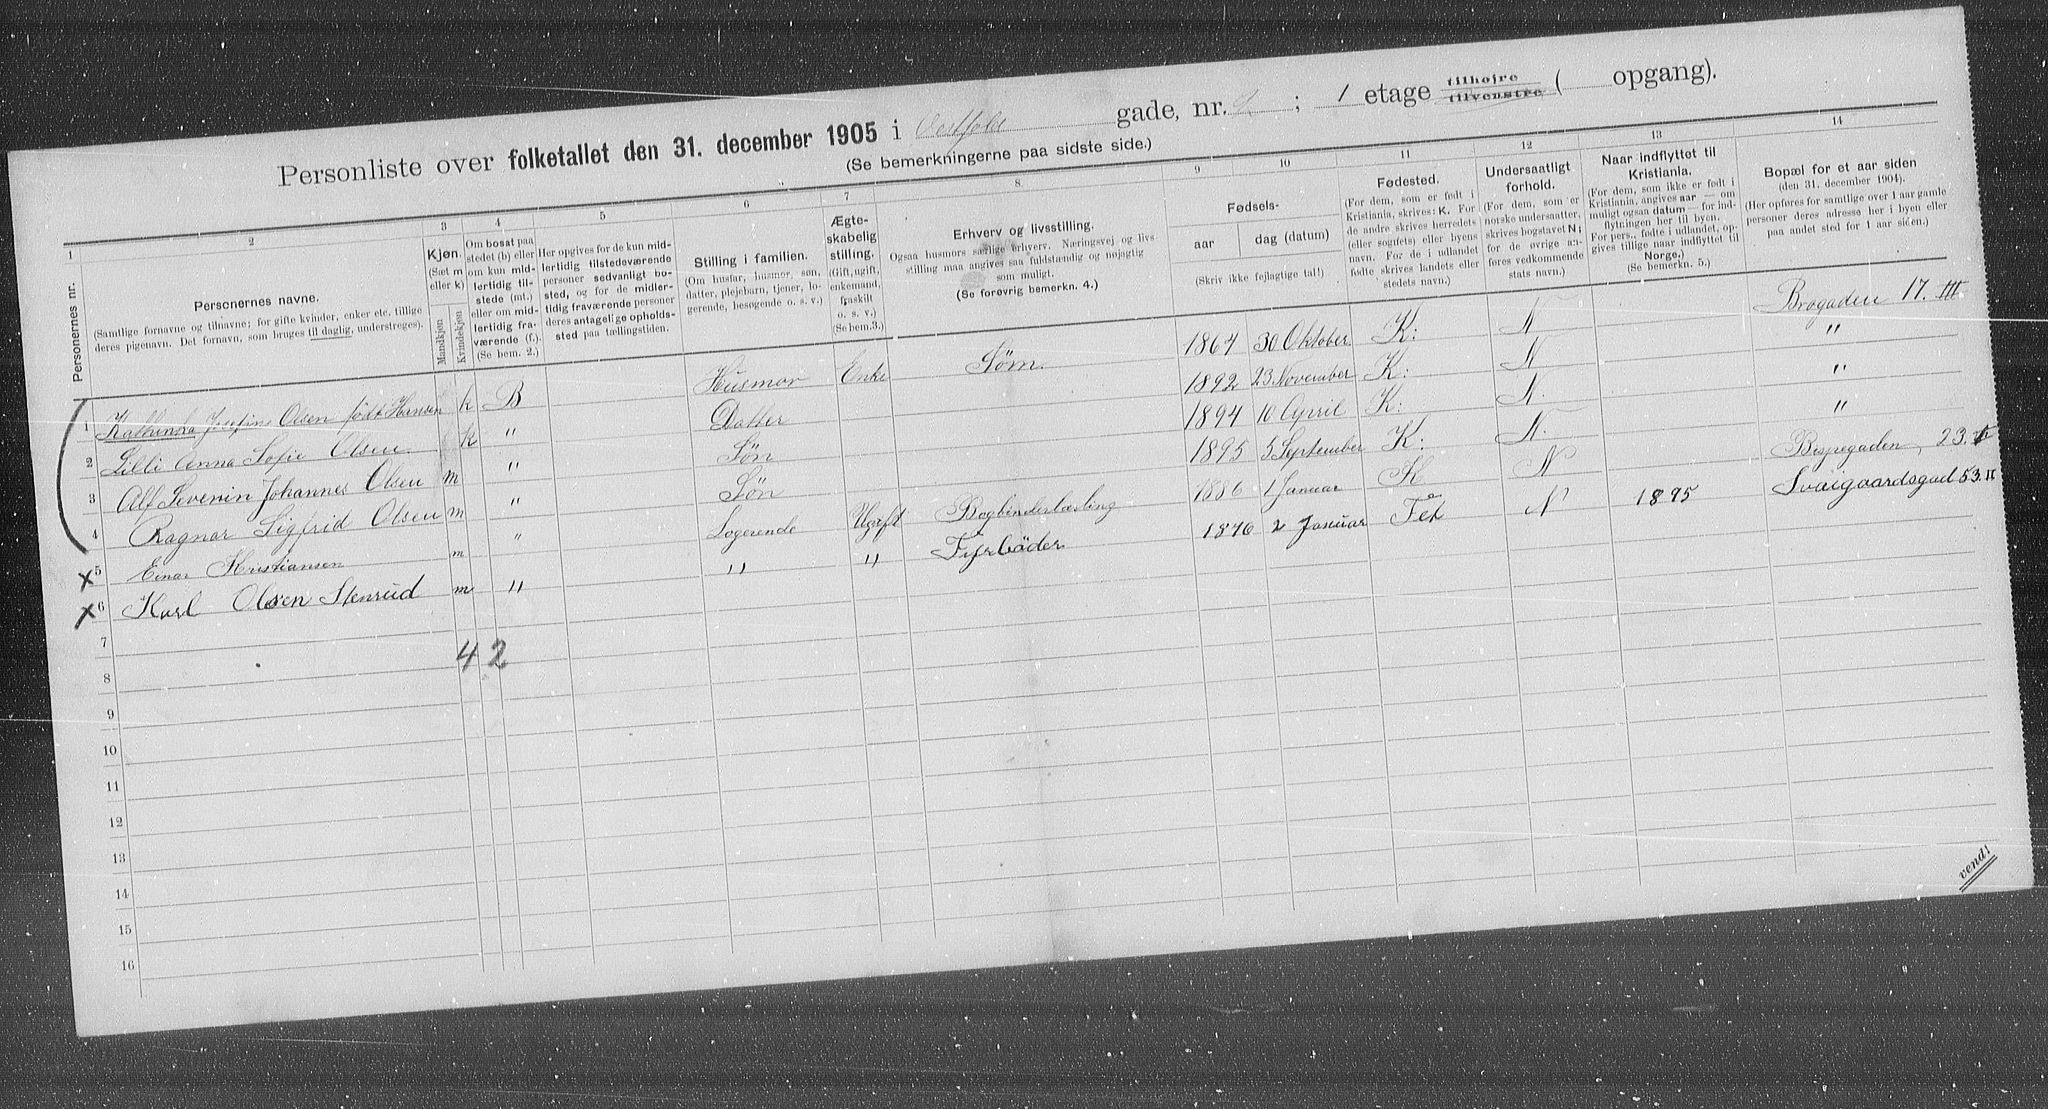 Personliste over folketallet den 31. december 1905 i Vestfold gade, nr. 2 ; 1 etage tilhøjre tilvenstre ( opgang).
(Se bemerkningerne paa sidste side.)
1 2 3 4 5 6 7 8 9 10 11 12 13 14
Personernes nr.
Personernes navne.
(Samtlige fornavne og tilnavne; for gifte kvinder, enker etc. tillige
deres pigenavn. Det fornavn, som bruges til daglig, understreges).
Kjøn.
(Sæt m
eller k)
Mandkjøn
Kvindekjøn
Om bosat paa
stedet (b) eller
om kun mid-
lertidig til-
stede (mt.)
eller om mid-
lertidig fra-
værende (f.).
(Se bem. 2.)
Her opgives for de kun mid-
lertidig tilstedeværende
personer sedvanligt bo-
sted, og for de midler-
tidig fraværende personer
deres antagelige opholds-
sted paa tællingstiden.
Stilling i familien.
(Om husfar, husmor, søn,
datter, plejebarn, tjener, lo-
gerende, besøgende o. s. v.)
Ægte-
skabelig
stilling.
(Gift, ugift,
enkemand,
fraskilt
o. s. v.)
(Se bem. 3.)
Erhverv og livsstilling.
Ogsaa husmors særlige erhverv. Næringsvej og livs-
stilling maa angives saa fuldstændig og nøjagtig
som muligt.
(Se forøvrig bemerkn. 4.)
Fødsels-
aar
dag (datum)
(Skriv ikke fejlagtige tal!)
Fødested.
(For dem, som er født i
Kristiania, skrives: K. For
de andre skrives herredets
(eller sognets) eller byens
navn. For de i udlandet
fødte skrives landets eller
stedets navn.)
Undersaatligt
forhold.
(For dem, som er
norske undersaatter,
skrives bogstavet N;
for de øvrige an-
føres vedkommende
stats navn.)
Naar indflyttet til
Kristiania.
(For dem, som ikke er født i
Kristiania, angives aar — om
muligt ogsaa datum — for ind-
flytningen her til byen.
For pers., fødte i udlandet, op-
gives tillige naar indflyttet til
Norge.)
(Se bemerkn. 5.)
Bopæl for et aar siden
(den 31. december 1904).
(Her opføres for samtlige over 1 aar gamle
personer deres adresse her i byen eller
paa andet sted for 1 aar siden.)
1 Kathinka Josefine Olsen født Hansen k B Husmor Enke Søm. 1864 30 Oktober K: N Brogaden 17. III
2 Lilli Anna Sofie Olsen k " Datter 1892 23 November K: N "
3 Alf Severin Johannes Olsen m " Søn 1894 10 April K: N. "
4 Ragnar Sigfrid Olsen m " Søn 1895 5 September K: N. "
x 5 Einar Kristiansen m " Logerende Ugift Bogbinderlærling 1886 1 Januar K N Bispegaden 23.
x 6 Karl Olsen Stenrud m " " " Fyrbøder 1876 2 Januar Fet N 1895 Svaigaardsgad 53 II
7
4 2
8
9
10
11
12
13
14
15
16
vend!